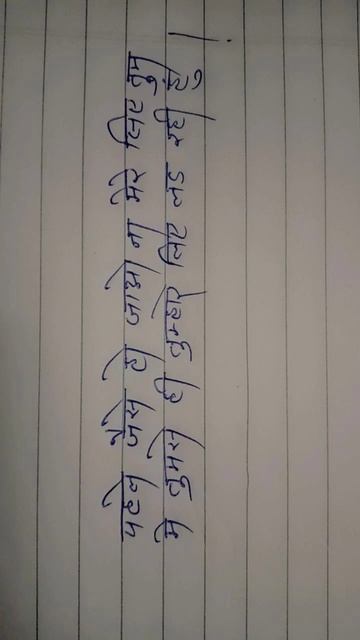 पहले जैसे हो जाओ ना मेरे लिए तुम
मै तुमसे ही तुम्हारे लिए लड रही हूँ।